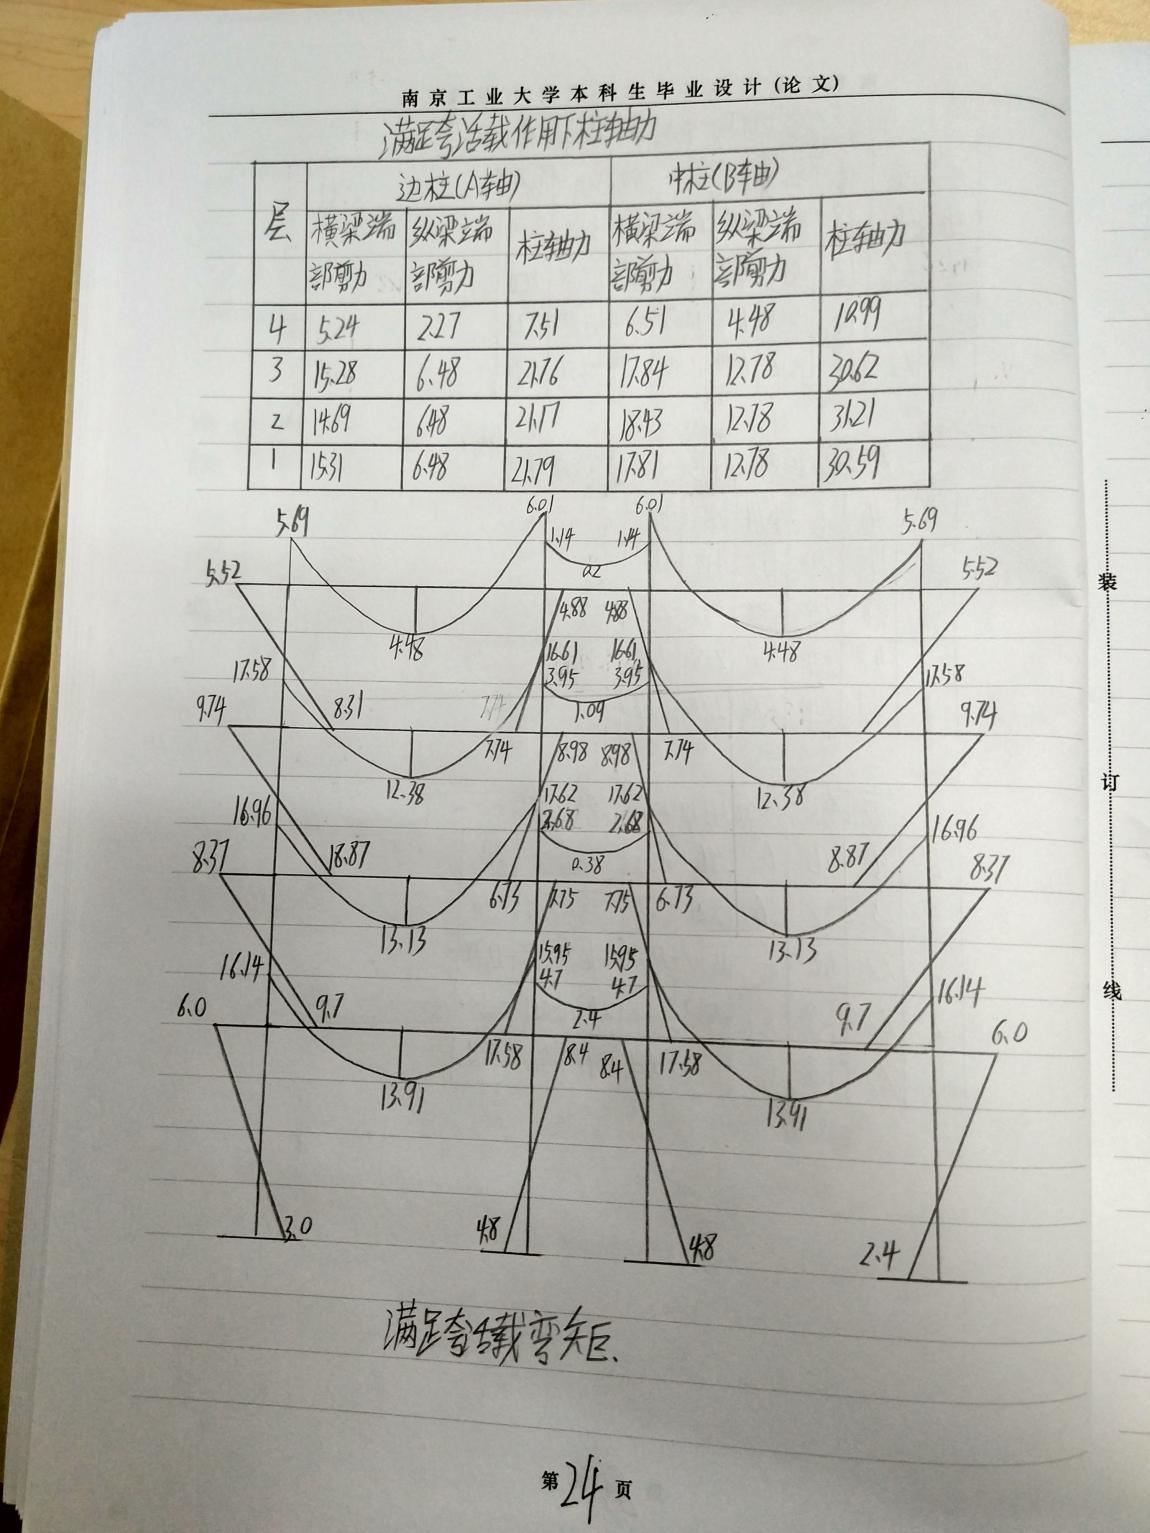 南京工业大学本科生毕业设计(论文)
满足夸活载作用下柱轴力
层 边柱(A轴) 中柱(B轴)
横梁端部剪力 纵梁端部剪力 柱轴力 横梁端部剪力 纵梁端部剪力 柱轴力
4 5.24 2.27 7.51 6.51 4.48 10.99
3 15.28 6.48 21.76 17.84 12.78 30.62
2 14.69 6.48 21.17 18.43 12.78 31.21
1 15.31 6.48 21.79 17.81 12.78 30.59
6.01 6.01
5.69 1.14 1.14 5.69
0.2
5.52 5.52
4.88 4.88
4.48 4.48
16.61 16.61
17.58 3.95 3.95 17.58
9.74 8.31 7.74 1.09 9.74
7.74 8.98 8.98 7.74
12.38 17.62 17.62 12.38
16.96 2.68 2.68 16.96
8.37 18.87 0.38 8.87 8.37
6.73 7.75 7.75 6.73
13.13 13.13
15.95 15.95
16.14 4.7 4.7 16.14
6.0 9.7 2.4 9.7 6.0
17.58 8.4 8.4 17.58
13.91 13.91
3.0 4.8 4.8 2.4
满足夸活载弯矩、
第24页
装
订
线